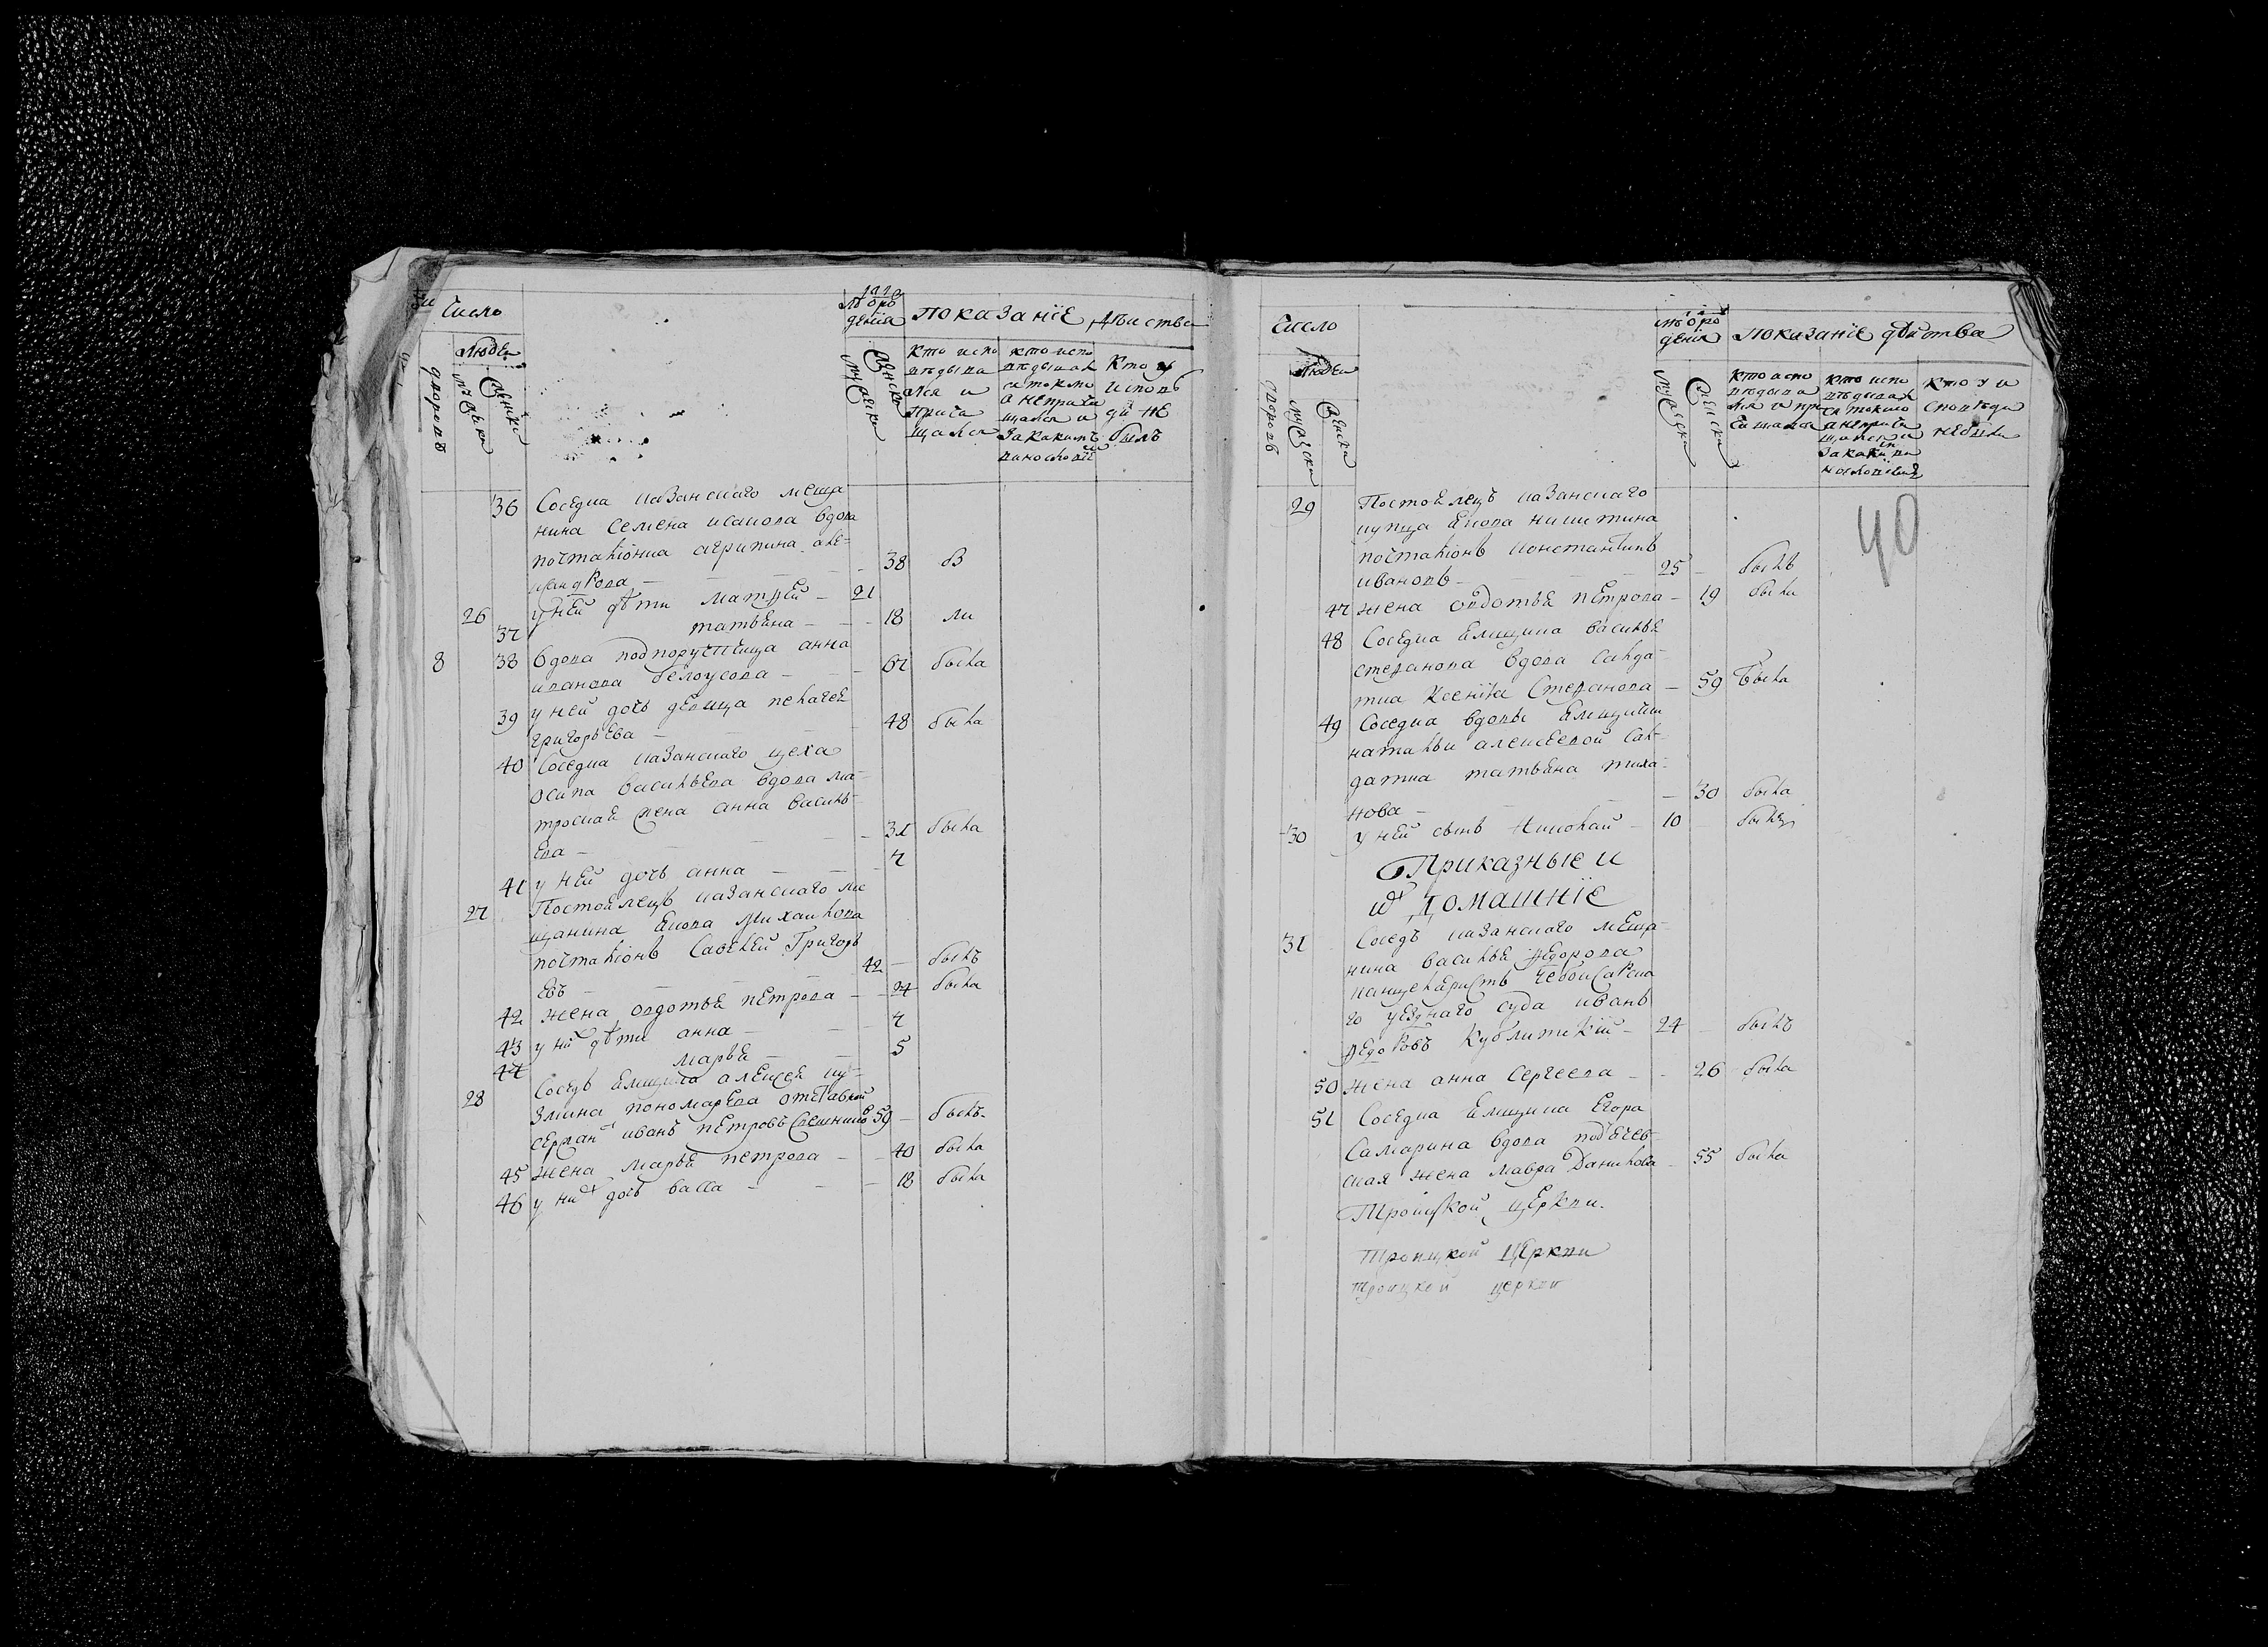 Число
Людеи
дворовъ
мужеска
женска
лѣ ѿ ро
жденія
мужеска
женска
показаніе дѣиства
кто испо
вѣдыва
лся и
прича
щался
кто испо
вѣдывал
ся токмо
а неприча
щался и
закакимъ
виносло
кто у
исповѣ
ди не
былъ
36 Соседка казанскаго меща
нина Семена исакова вдова
почталіонка агрипина але-
ѯандрова — 38 б
26 у ней дѣти матѳей — 21
37 татьяна — 18 ли
8 38 вдова подпорутчица анна
иванова белоусова — 67 была
39 у ней дочь девица пелагея
григорьева — 48 была
40 Соседка казанскаго цеха
осипа васильева вдова ма-
троская жена анна василь-
ева — 31 была
41 у ней дочь анна — 7
27 Постоялецъ казанскаго ме
щанина якова михаилова
почталіонъ Савелей Григорь
евъ — 42 — былъ
42 жена овдотья петрова — 24 была
43 у них дѣти анна — 7
44 марья — 5
28 Соседъ ямщика алексея ку-
змина пономарева отставной
сержан иванъ петровъ 59 — былъ
45 жена марья петрова — 40 была
46 у них дочь васса — 18 была
Число
Людеи
дворовъ
мужеска
женска
лѣ ѿ ро
жденія
мужеска
женска
показаніе дѣиства
кто испо
вѣдыва
лся и при
чащался
кто испо
вѣдывал
ся токмо
а неприча
щался и
закаким ви
нословіем
кто у и
сповѣди
небылъ
40
29 Постоялецъ казанскаго
купца якова никитина
почталіонъ константинъ
ивановъ — 25 — былъ
47 жена овдотья петрова — 19 была
48 Соседка ямщика василья
степанова вдова салда-
тка Ксенія Степанова — 59 была
49 Соседка вдовы ямщички
натальи алексеевой сал-
датка татьяна тиха-
нова — 30 была
30 у ней сынъ николай — 10 былъ
Приказные и
их домашніе
31 Соседъ казанскаго меща-
нина василья ѳедорова
канцеляристъ чебоксарска
го уезднаго суда иванъ
ѳедоровъ Кублитскій — 24 — былъ
50 жена анна сергеева — 26 была
51 Соседка ямщика Егора
Самарина вдова подячев-
ская жена мавра Данилова — 55 была
Троицкой церкви.
Троицкой церкви
троицкой церкви